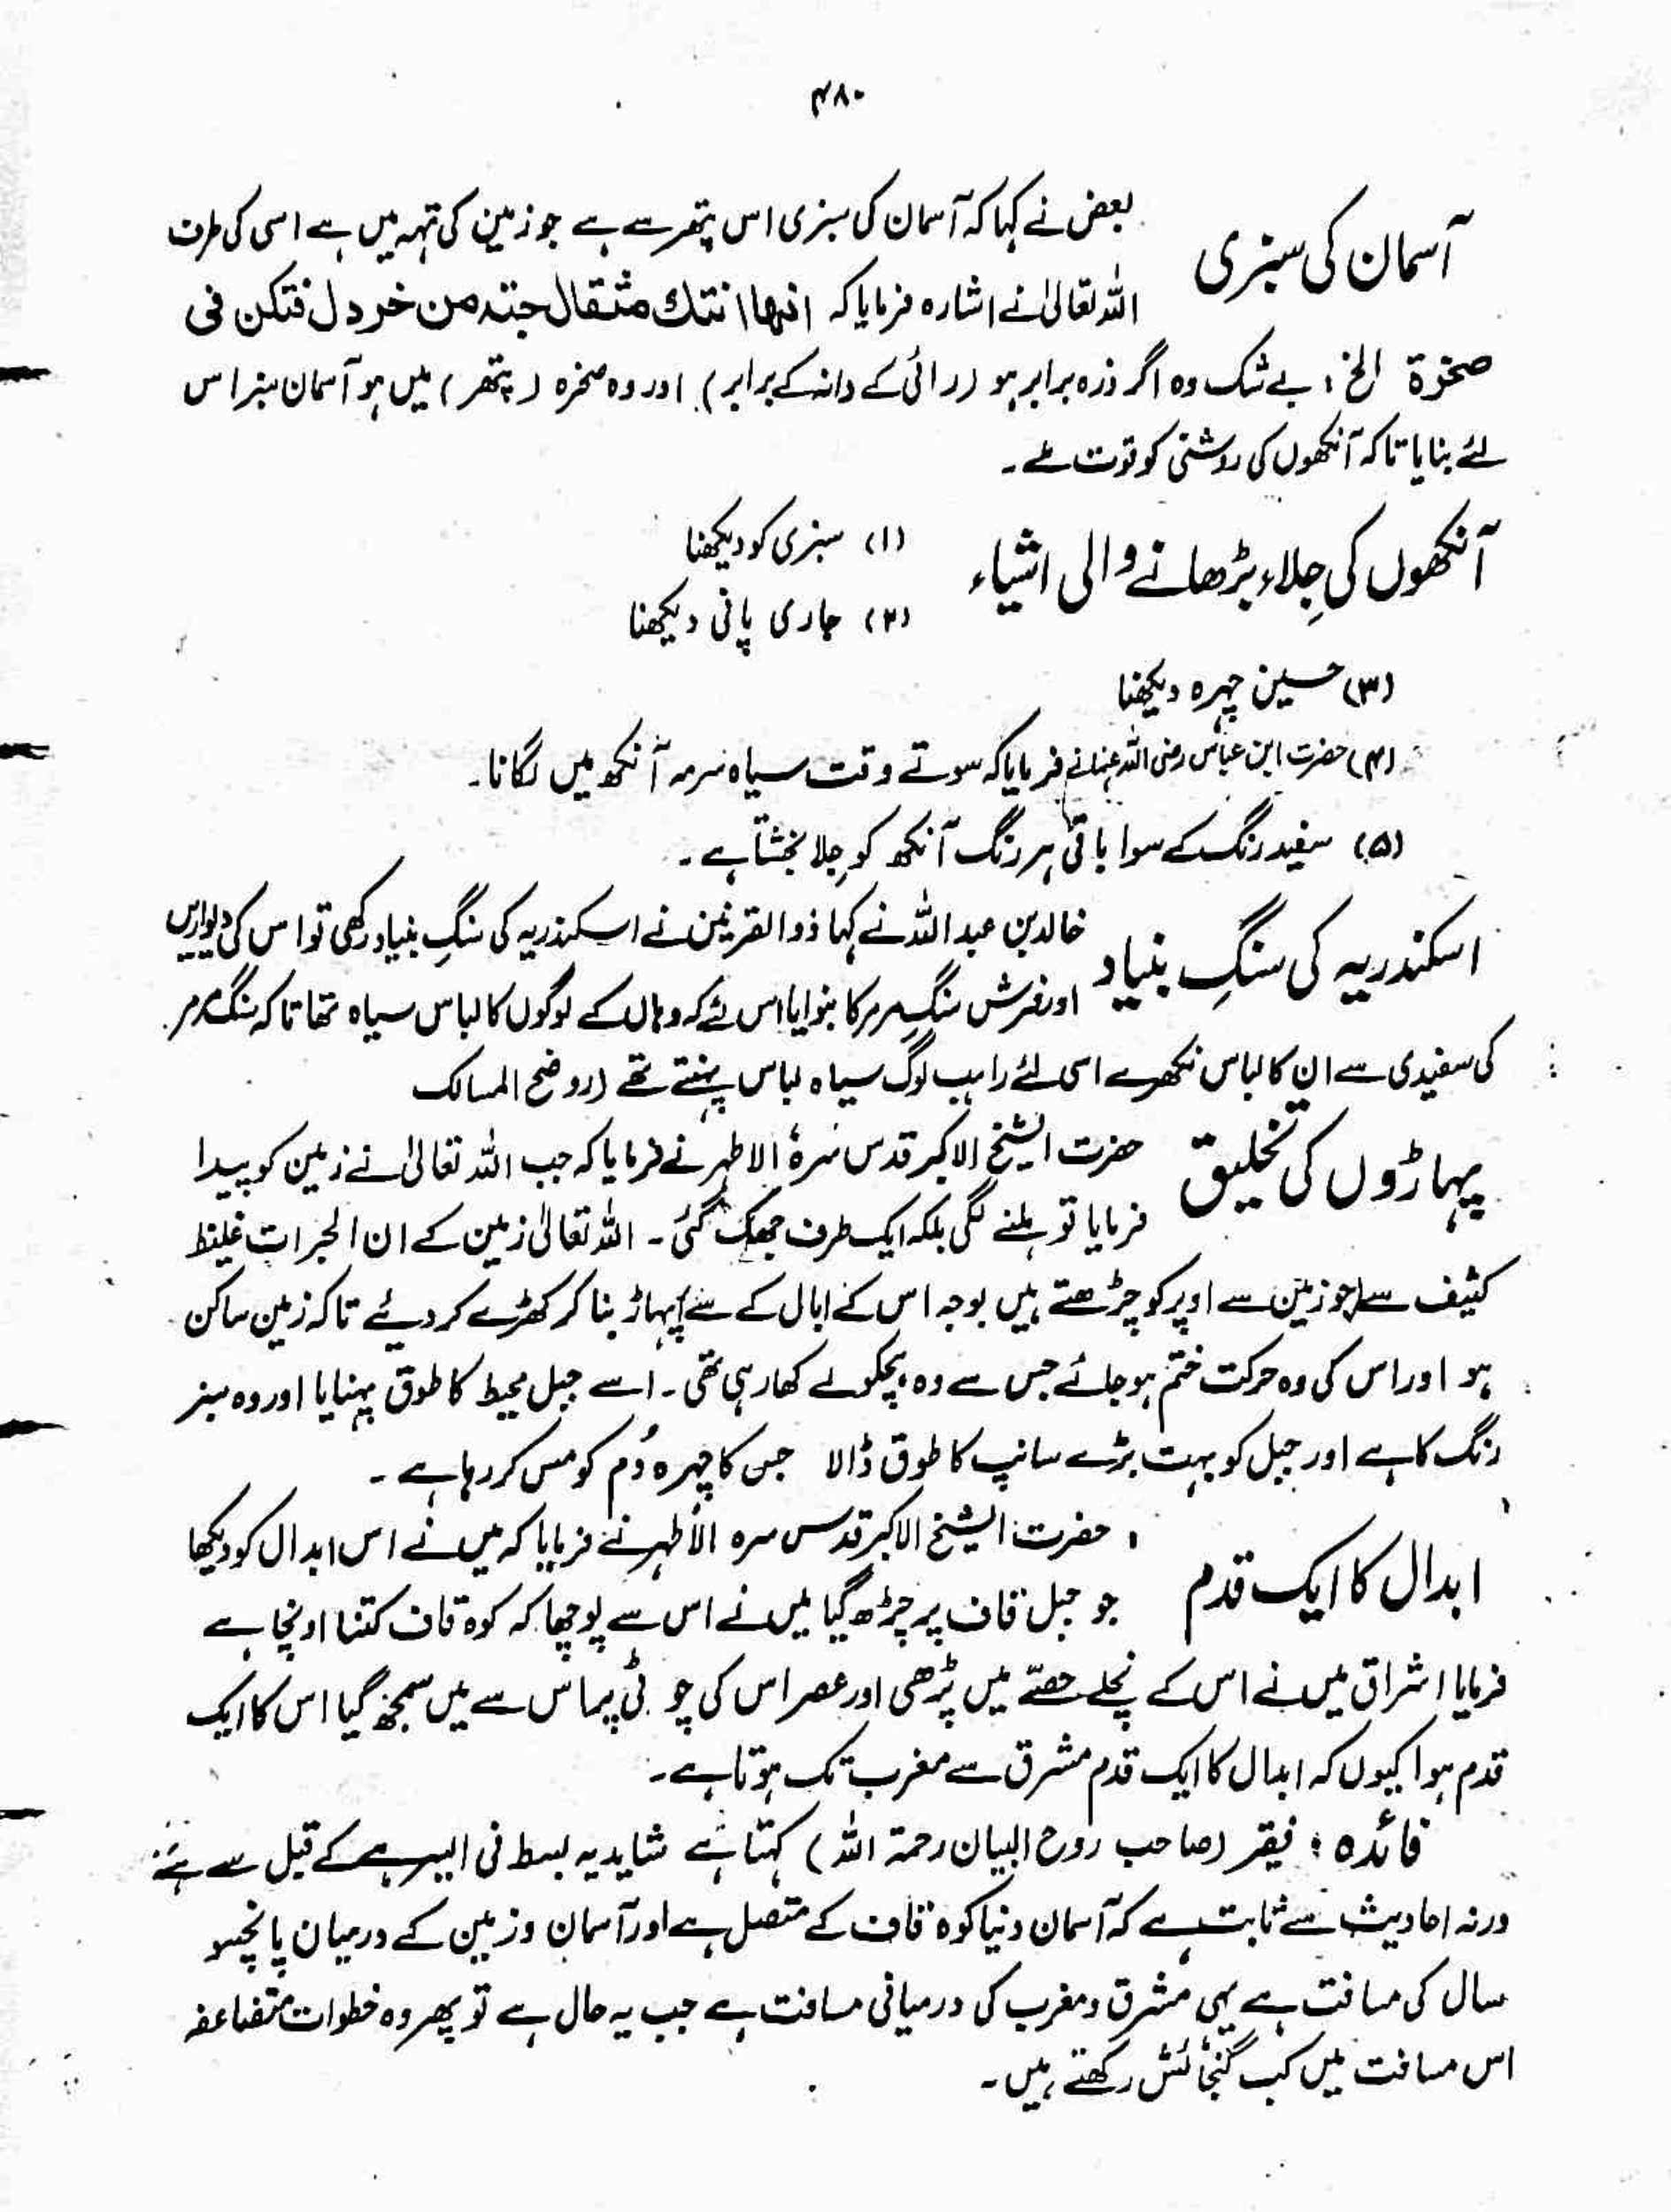 ۴۸۰
آسمان کی سبزی
بعض نے کہا کہ آسمان کی سبزی اس پتھر سے ہے جو زمین کی تہہ میں ہے اسی کی طرف
اللہ تعالیٰ نے اشارہ فرمایا کہ انہا ان تک مثقال حبتہ من خردل فتکن فی
صخرۃ الخ ؛ بے شک وہ اگر ذرہ برابر ہو (رائی کے دانہ کے برابر) اور وہ صخرہ (پتھر) میں ہو آسمان سبز اس
لئے بنایا تاکہ آنکھوں کی روشنی کو قوت ملے۔
آنکھوں کی جِلاء بڑھانے والی اشیاء
(۱) سبزی کو دیکھنا
(۲) جاری پانی دیکھنا
(۳) حسین چہرہ دیکھنا
(۴) حضرت ابن عباس رضی اللہ عنہما نے فرمایا کہ سوتے وقت سیاہ سرمہ آنکھ میں لگانا۔
(۵) سفید رنگ کے سوا باقی ہر رنگ آنکھ کو جِلا بخشتا ہے۔
اسکندریہ کی سنگِ بنیاد
خالد بن عبد اللہ نے کہا ذوالقرنین نے اسکندریہ کی سنگِ بنیاد رکھی تو اس کی دیواریں
اور فرش سنگِ مرمر کا بنوایا اس لئے کہ وہاں کے لوگوں کا لباس سیاہ تھا تاکہ سنگ مرمر
کی سفیدی سے ان کا لباس نکھرے اسی لئے راہب لوگ سیاہ لباس پہنتے تھے (روضح المسالک
پہاڑوں کی تخلیق
حضرت الشیخ الاکبر قدس سرہٗ الاطہر نے فرمایا کہ جب اللہ تعالیٰ نے زمین کو پیدا
فرمایا تو ہلنے لگی بلکہ ایک طرف جھک گئی۔ اللہ تعالیٰ زمین کے ان الجرات غلیظ
کثیف سے (جو زمین سے اوپر کو چڑھتے ہیں بوجہ اس کے ابال کے سے) پہاڑ بنا کر کھڑے کر دیئے تاکہ زمین ساکن
ہو اور اس کی وہ حرکت ختم ہو جائے جس سے وہ ہچکولے کھا رہی تھی۔ اسے جبل محیط کا طوق پہنایا اور وہ سبز
رنگ کا ہے اور جبل کو بہت بڑے سانپ کا طوق ڈالا جس کا چہرہ دُم کو مس کر رہا ہے۔
ابدال کا ایک قدم
حضرت الشیخ الاکبر قدس سرہ الاطہر نے فرمایا کہ میں نے اس ابدال کو دیکھا
جو جبل قاف پر چڑھ گیا میں نے اس سے پوچھا کہ کوہ قاف کتنا اونچا ہے
فرمایا اشراق میں نے اس کے نچلے حصّے میں پڑھی اور عصر اس کی چوٹی پہ اس سے میں سمجھ گیا اس کا ایک
قدم ہوا کیوں کہ ابدال کا ایک قدم مشرق سے مغرب تک ہوتا ہے۔
فائدہ ؛ فقیر (صاحب روح البیان رحمۃ اللہ) کہتا ہے شاید یہ بسط فی السیر ہے کے قبل سے ہے
ورنہ احادیث سے ثابت ہے کہ آسمان دنیا کوہ قاف کے متصل ہے اور آسمان و زمین کے درمیان پانچسو
سال کی مسافت ہے یہی مشرق و مغرب کی درمیانی مسافت ہے جب یہ حال ہے تو پھر وہ خطوات متضاعفہ
اس مسافت میں کب گنجائش رکھتے ہیں۔